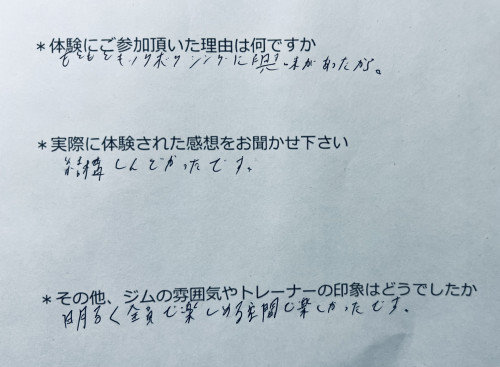 *体験にご参加頂いた理由は何ですか
もともとキックボクシングに興味があったから。
*実際に体験された感想をお聞かせ下さい
結構しんどかったです。
*その他、ジムの雰囲気やトレーナーの印象はどうでしたか
明るく全員で楽しめる空間で楽しかったです。